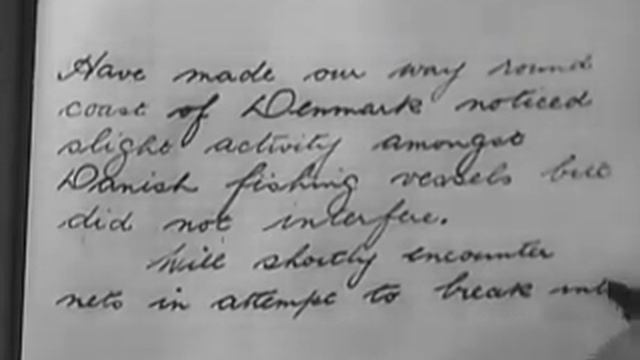 Have made our way round
coast of Denmark noticed
slight activity amongst
Danish fishing vessels but
did not interfere.
Will shortly encounter
nets in attempt to break